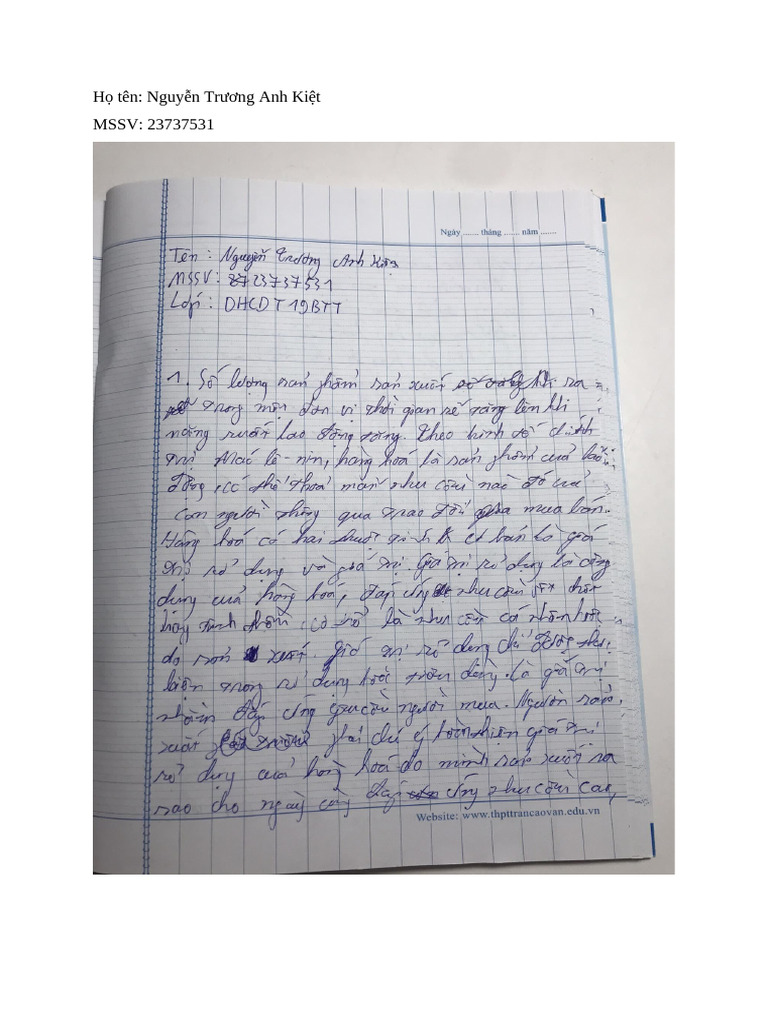 Họ tên: Nguyễn Trương Anh Kiệt
MSSV: 23737531
Ngày ...... tháng ...... năm ......
Tên : Nguyễn Trương Anh Kiệt
MSSV: 23737531
Lớp : DHCDT19BTT
1. Số lượng sản phẩm sản xuất ra
trong một đơn vị thời gian sẽ tăng lên khi
năng suất lao động tăng. Theo kinh tế chính
trị Mác lê-nin, hàng hoá là sản phẩm của lao
động, có thể thoả mãn nhu cầu nào đó của
con người thông qua trao đổi mua bán.
Hàng hoá có hai thuộc tính cơ bản là giá
trị sử dụng và giá trị. Giá trị sử dụng là công
dụng của hàng hoá, đáp ứng nhu cầu vật chất
hay tinh thần, có thể là nhu cầu cá nhân hoặc
do sản xuất. Giá trị sử dụng chỉ được thể
hiện trong sử dụng hoặc tiêu dùng là giá trị
nhằm đáp ứng yêu cầu người mua. Người sản
xuất phải chú ý hoàn thiện giá trị
sử dụng của hàng hoá do mình sản xuất ra
sao cho ngày càng đáp ứng nhu cầu cao,
Website: www.thpttrancaovan.edu.vn